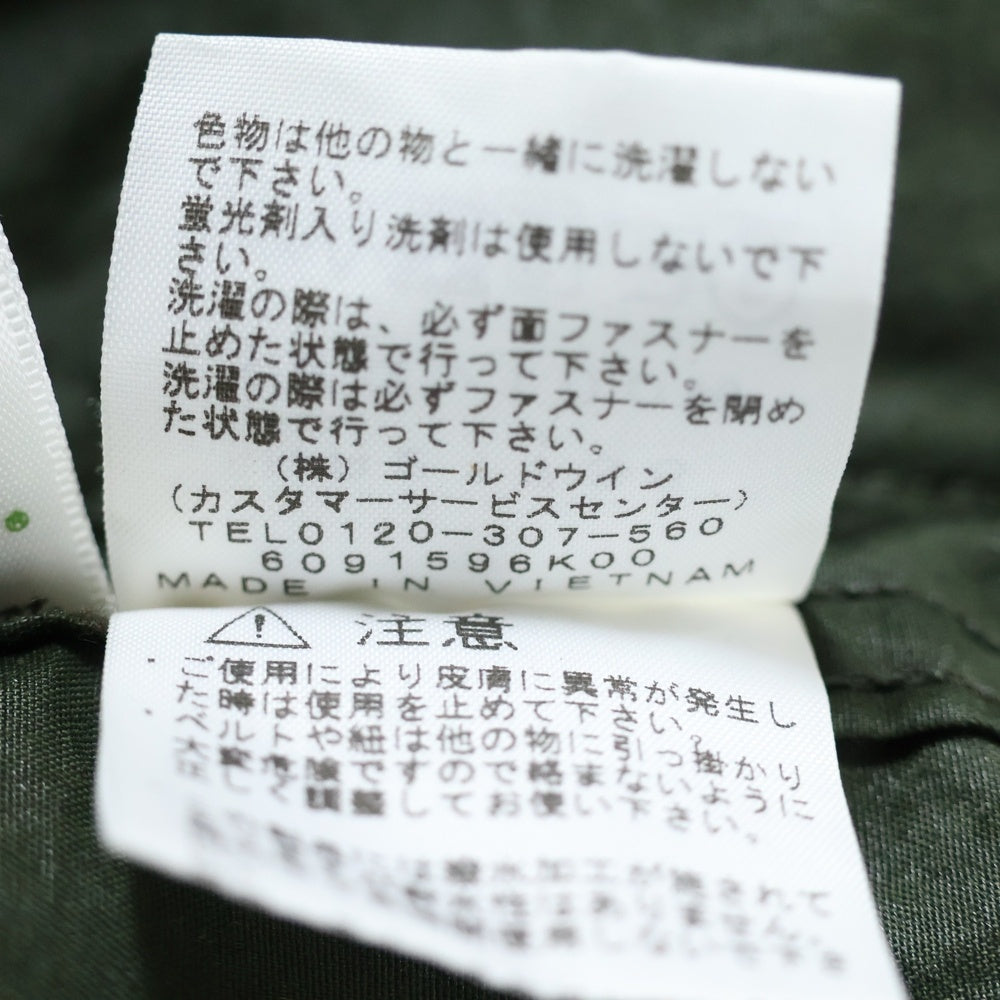 色物は他の物と一緒に洗濯しない
で下さい。
蛍光剤入り洗剤は使用しないで下
さい。
洗濯の際は、必ず面ファスナーを
止めた状態で行って下さい。
洗濯の際は必ずファスナーを閉め
た状態で行って下さい。
(株) ゴールドウイン
(カスタマーサービスセンター)
TEL0120-307-560
6091596K00
MADE IN VIETNAM
注意
ご使用により皮膚に異常が発生し
た時は使用を止めて下さい。
ベルトや紐は他の物に引っ掛かり
大変危険ですので絡まないように
調整してお使い下さい。
は撥水加工が施されて
性はありません。